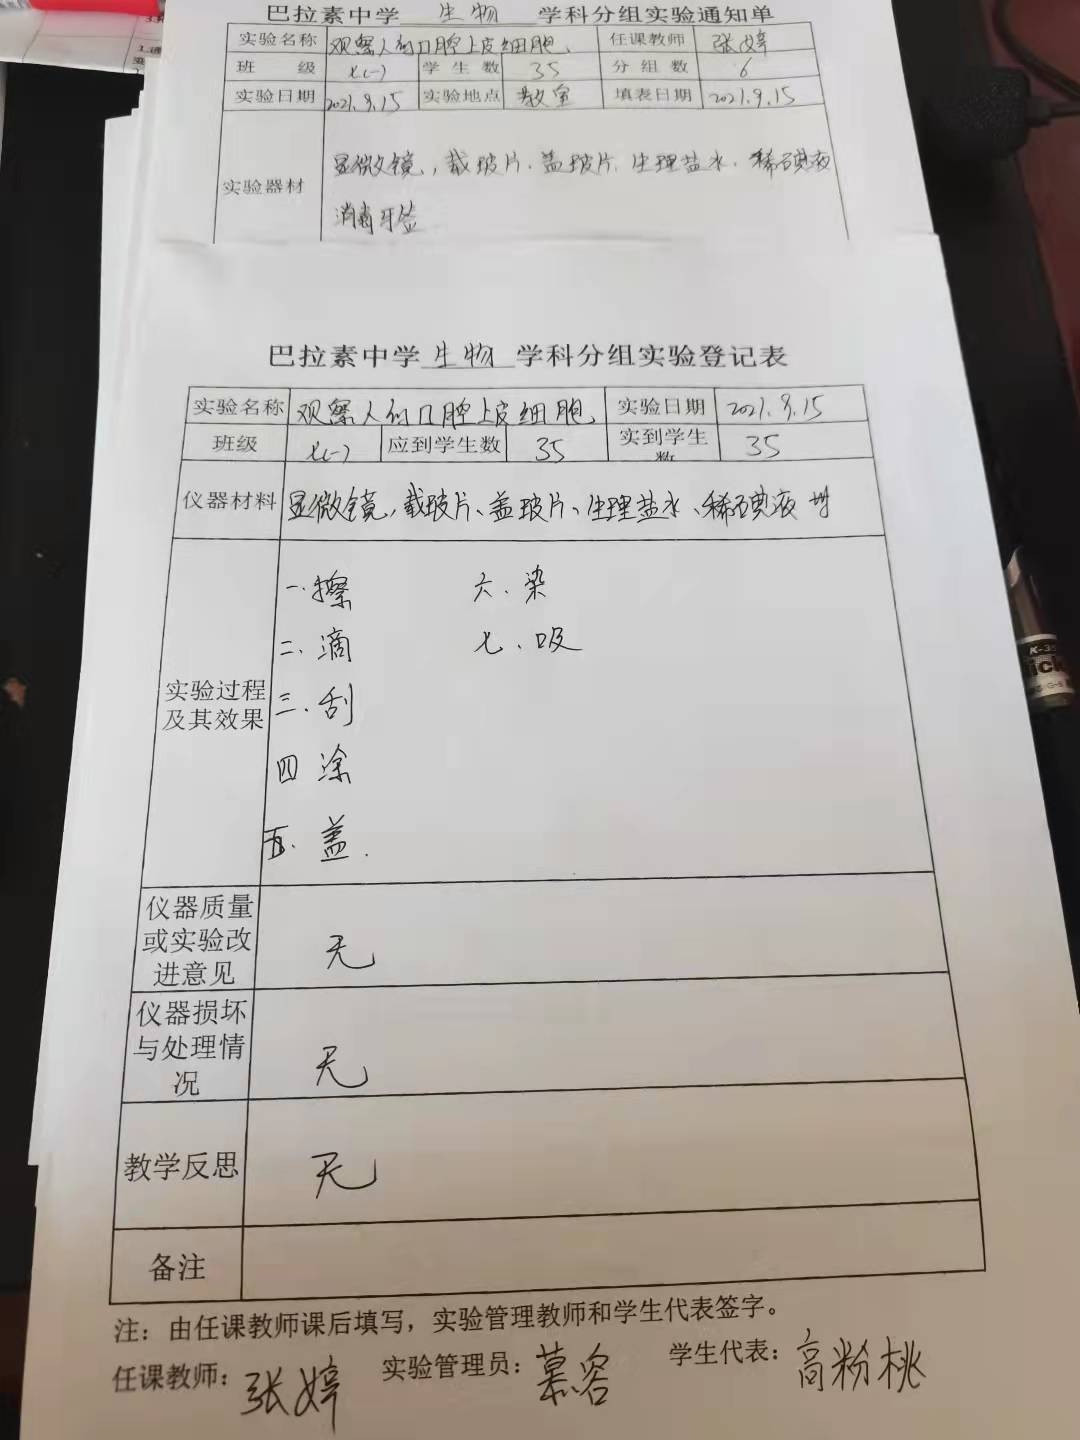 巴拉素中学 生物 学科分组实验通知单
实验名称 观察人的口腔上皮细胞 任课教师 张婷
班 级 七(一) 学生数 35 分组数 6
实验日期 2021.9.15 实验地点 教室 填表日期 2021.9.15
实验器材 显微镜,载玻片、盖玻片、生理盐水、稀碘液
消毒牙签
巴拉素中学 生物 学科分组实验登记表
实验名称 观察人的口腔上皮细胞 实验日期 2021.9.15
班级 七(一) 应到学生数 35 实到学生数 35
仪器材料 显微镜,载玻片、盖玻片、生理盐水、稀碘液
实验过程及其效果
一.擦 六.染
二.滴 七.吸
三.刮
四 涂
五.盖.
仪器质量或实验改进意见 无
仪器损坏与处理情况 无
教学反思 无
备注
注：由任课教师课后填写，实验管理教师和学生代表签字。
任课教师：张婷 实验管理员：慕容 学生代表：高粉桃